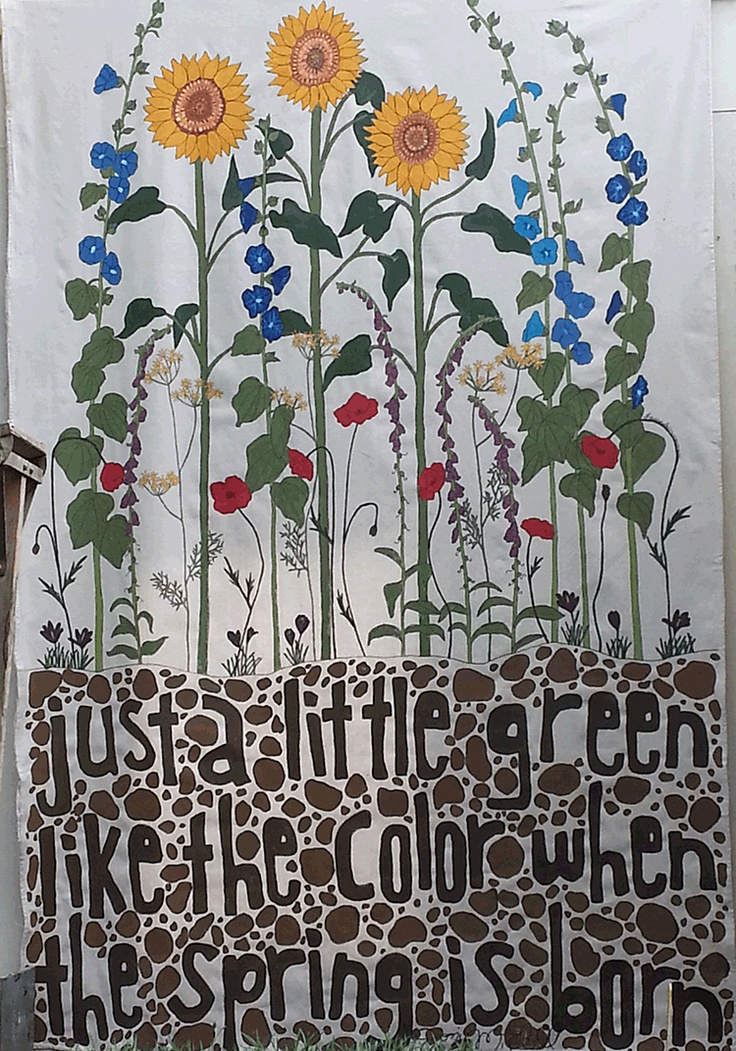 just a little green
like the color when
the spring is born